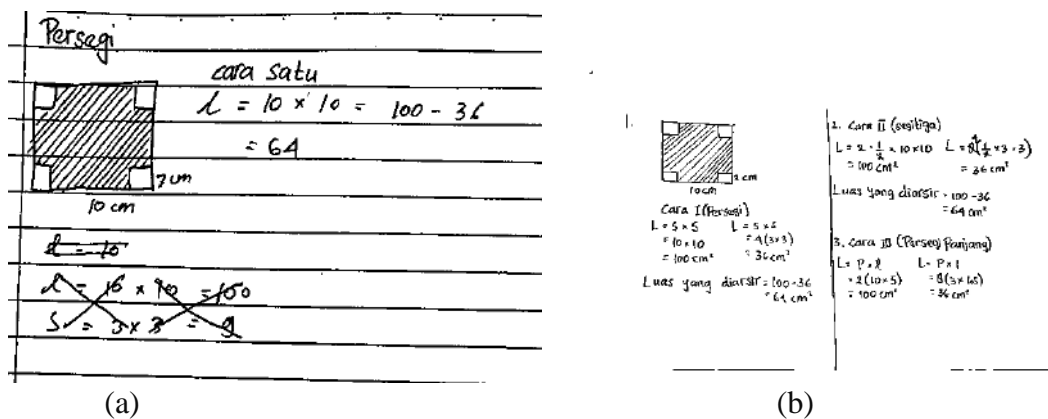 Persegi
cara satu
L = 10 × 10 = 100 - 36
= 64
3 cm
10 cm
l = 10
L = 10 × 10 = 100
S = 3 × 3 = 9
(a)
1.
3 cm
10 cm
Cara I (Persegi)
L = S × S L = S × S
= 10 × 10 = 4 (3 × 3)
= 100 cm² = 36 cm²
Luas yang diarsir = 100 - 36
= 64 cm²
2. Cara II (segitiga)
L = 2 · 1/2 × 10 × 10 L = 8 (1/2 × 3 × 3)
= 100 cm² = 36 cm²
Luas yang diarsir = 100 - 36
= 64 cm²
3. Cara III (Persegi Panjang)
L = P × l L = P × l
= 2 (10 × 5) = 8 (3 × 1,5)
= 100 cm² = 36 cm²
(b)